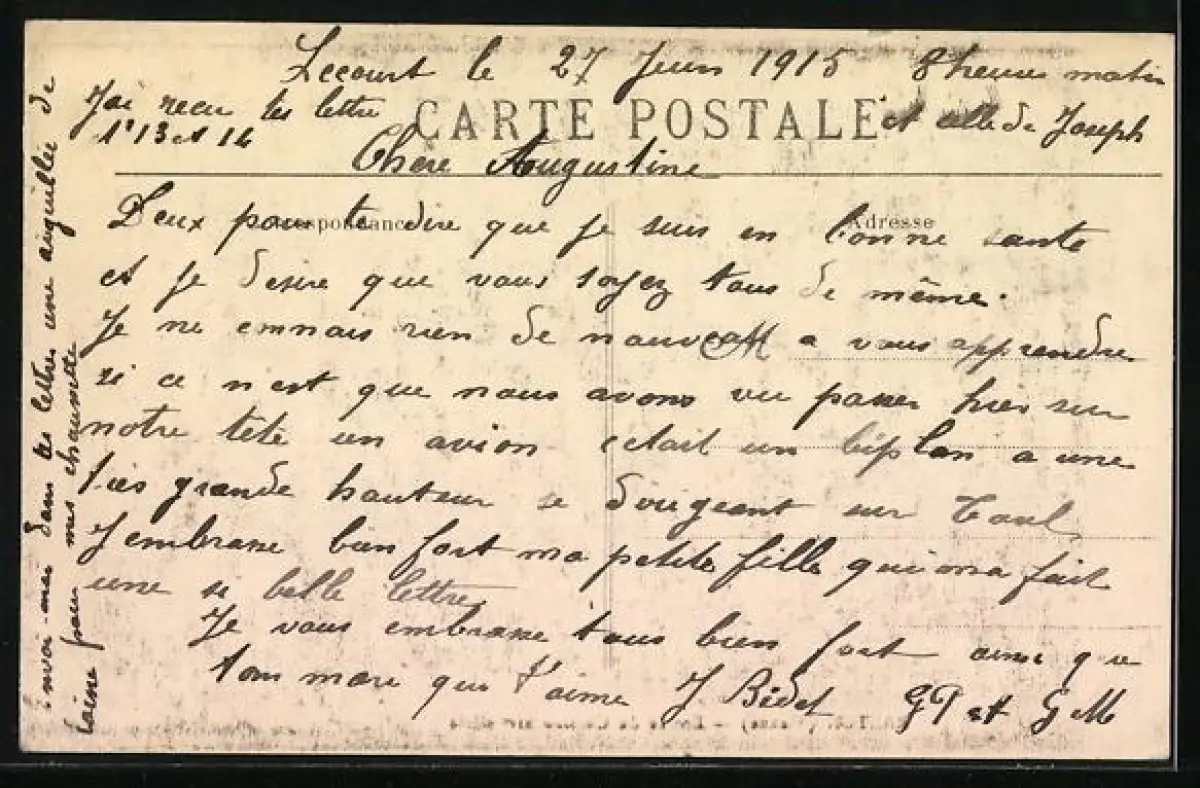 Lecourt le 27 Juin 1915 8 heures matin
J'ai recu tes lettre et celle de Joseph
1' 13 et 14
CARTE POSTALE
Chere Augustine
Correspondance
Adresse
Deux pour te dire que je suis en bonne sante
et je desire que vous soyez tous de même.
Je ne connais rien de nouveau a vous apprendre
si ce n'est que nous avons vu passer hier sur
notre tête un avion cetait un biplan a une
tres grande hauteur se dirigeant sur Toul
J'embrasse bien fort ma petite fille qui ma fait
une si belle lettre
Je vous embrasse tous bien fort ainsi que
ton mari qui t'aime J Bidet GP et GM
Envoi-moi dans tes lettres une aiguillée de
laine pour mes chaussette